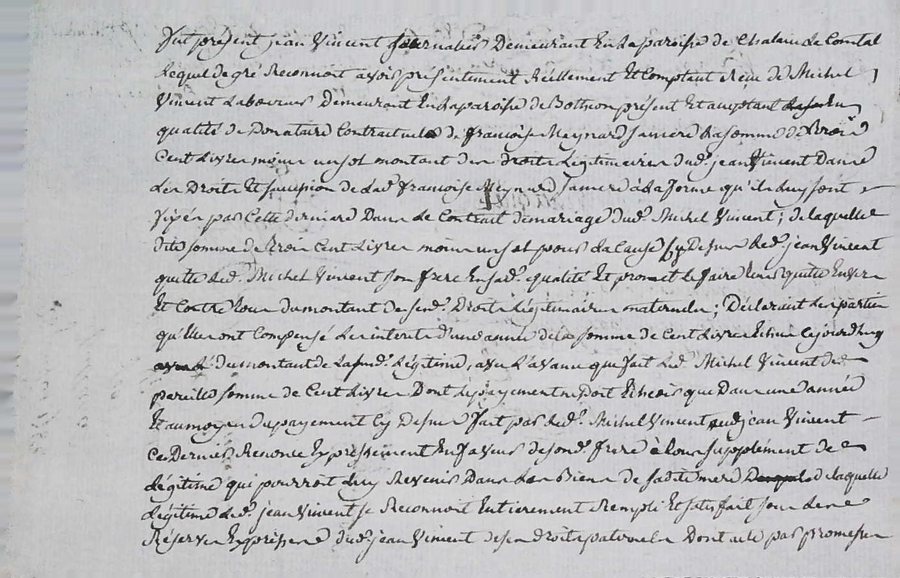 Fut présent jean Vincent journalier Demeurant En la paroisse de Chalain Le Comtal
Lequel de gré Reconnoit avoir présentement Réellement Et Comptent Reçu de Michel
Vincent Laboureur Demeurant En la paroisse de Botteon présent Et acceptant
qualité de Donataire Contractuel de françoise Meynard sa mere La somme de trois
Cent Livres moins un sol montant des droits Légitimaires dud. jean Vincent Dans
Les Droits Et succession de Lad. françoise Meynard sa mere à La forme qu'ils luy sont
fixés par Cette derniere Dans Le Contrat de mariage dud. Michel Vincent; de laquelle
dite somme de trois Cent Livres moins un sol pour La Cause Cy Dessus Led. jean Vincent
quitte Led. Michel Vincent son frere En sad. qualité Et promet Le faire tenir quitte Envers
Et Contre tous du montant de sesd. Droits Légitimaires maternels; Déclarant Les parties
qu'Elles ont Compensé Les interets d'une année de la somme de Cent Livres Echue Cejourdhuy
du montant de La susd. Légitime, avec L'avance que fait Led. Michel Vincent de
pareille somme de Cent Livres Dont Le payement ne Doit Echeoir que Dans une année
Et au moyen du payement Cy Dessus fait par Led. Michel Vincent aud. jean Vincent
Ce Dernier Renonce Expressement En faveur de sond. frere à tous supplement de
Légitime qui pourroit Luy Revenir Dans Les Biens de sadite mere de laquelle
Légitime Led. jean Vincent se Reconnoit Entierement Rempli Et satisfait sous La
Réserve Expresse dud. jean Vincent de ses droits paternels Dont acte par promesses